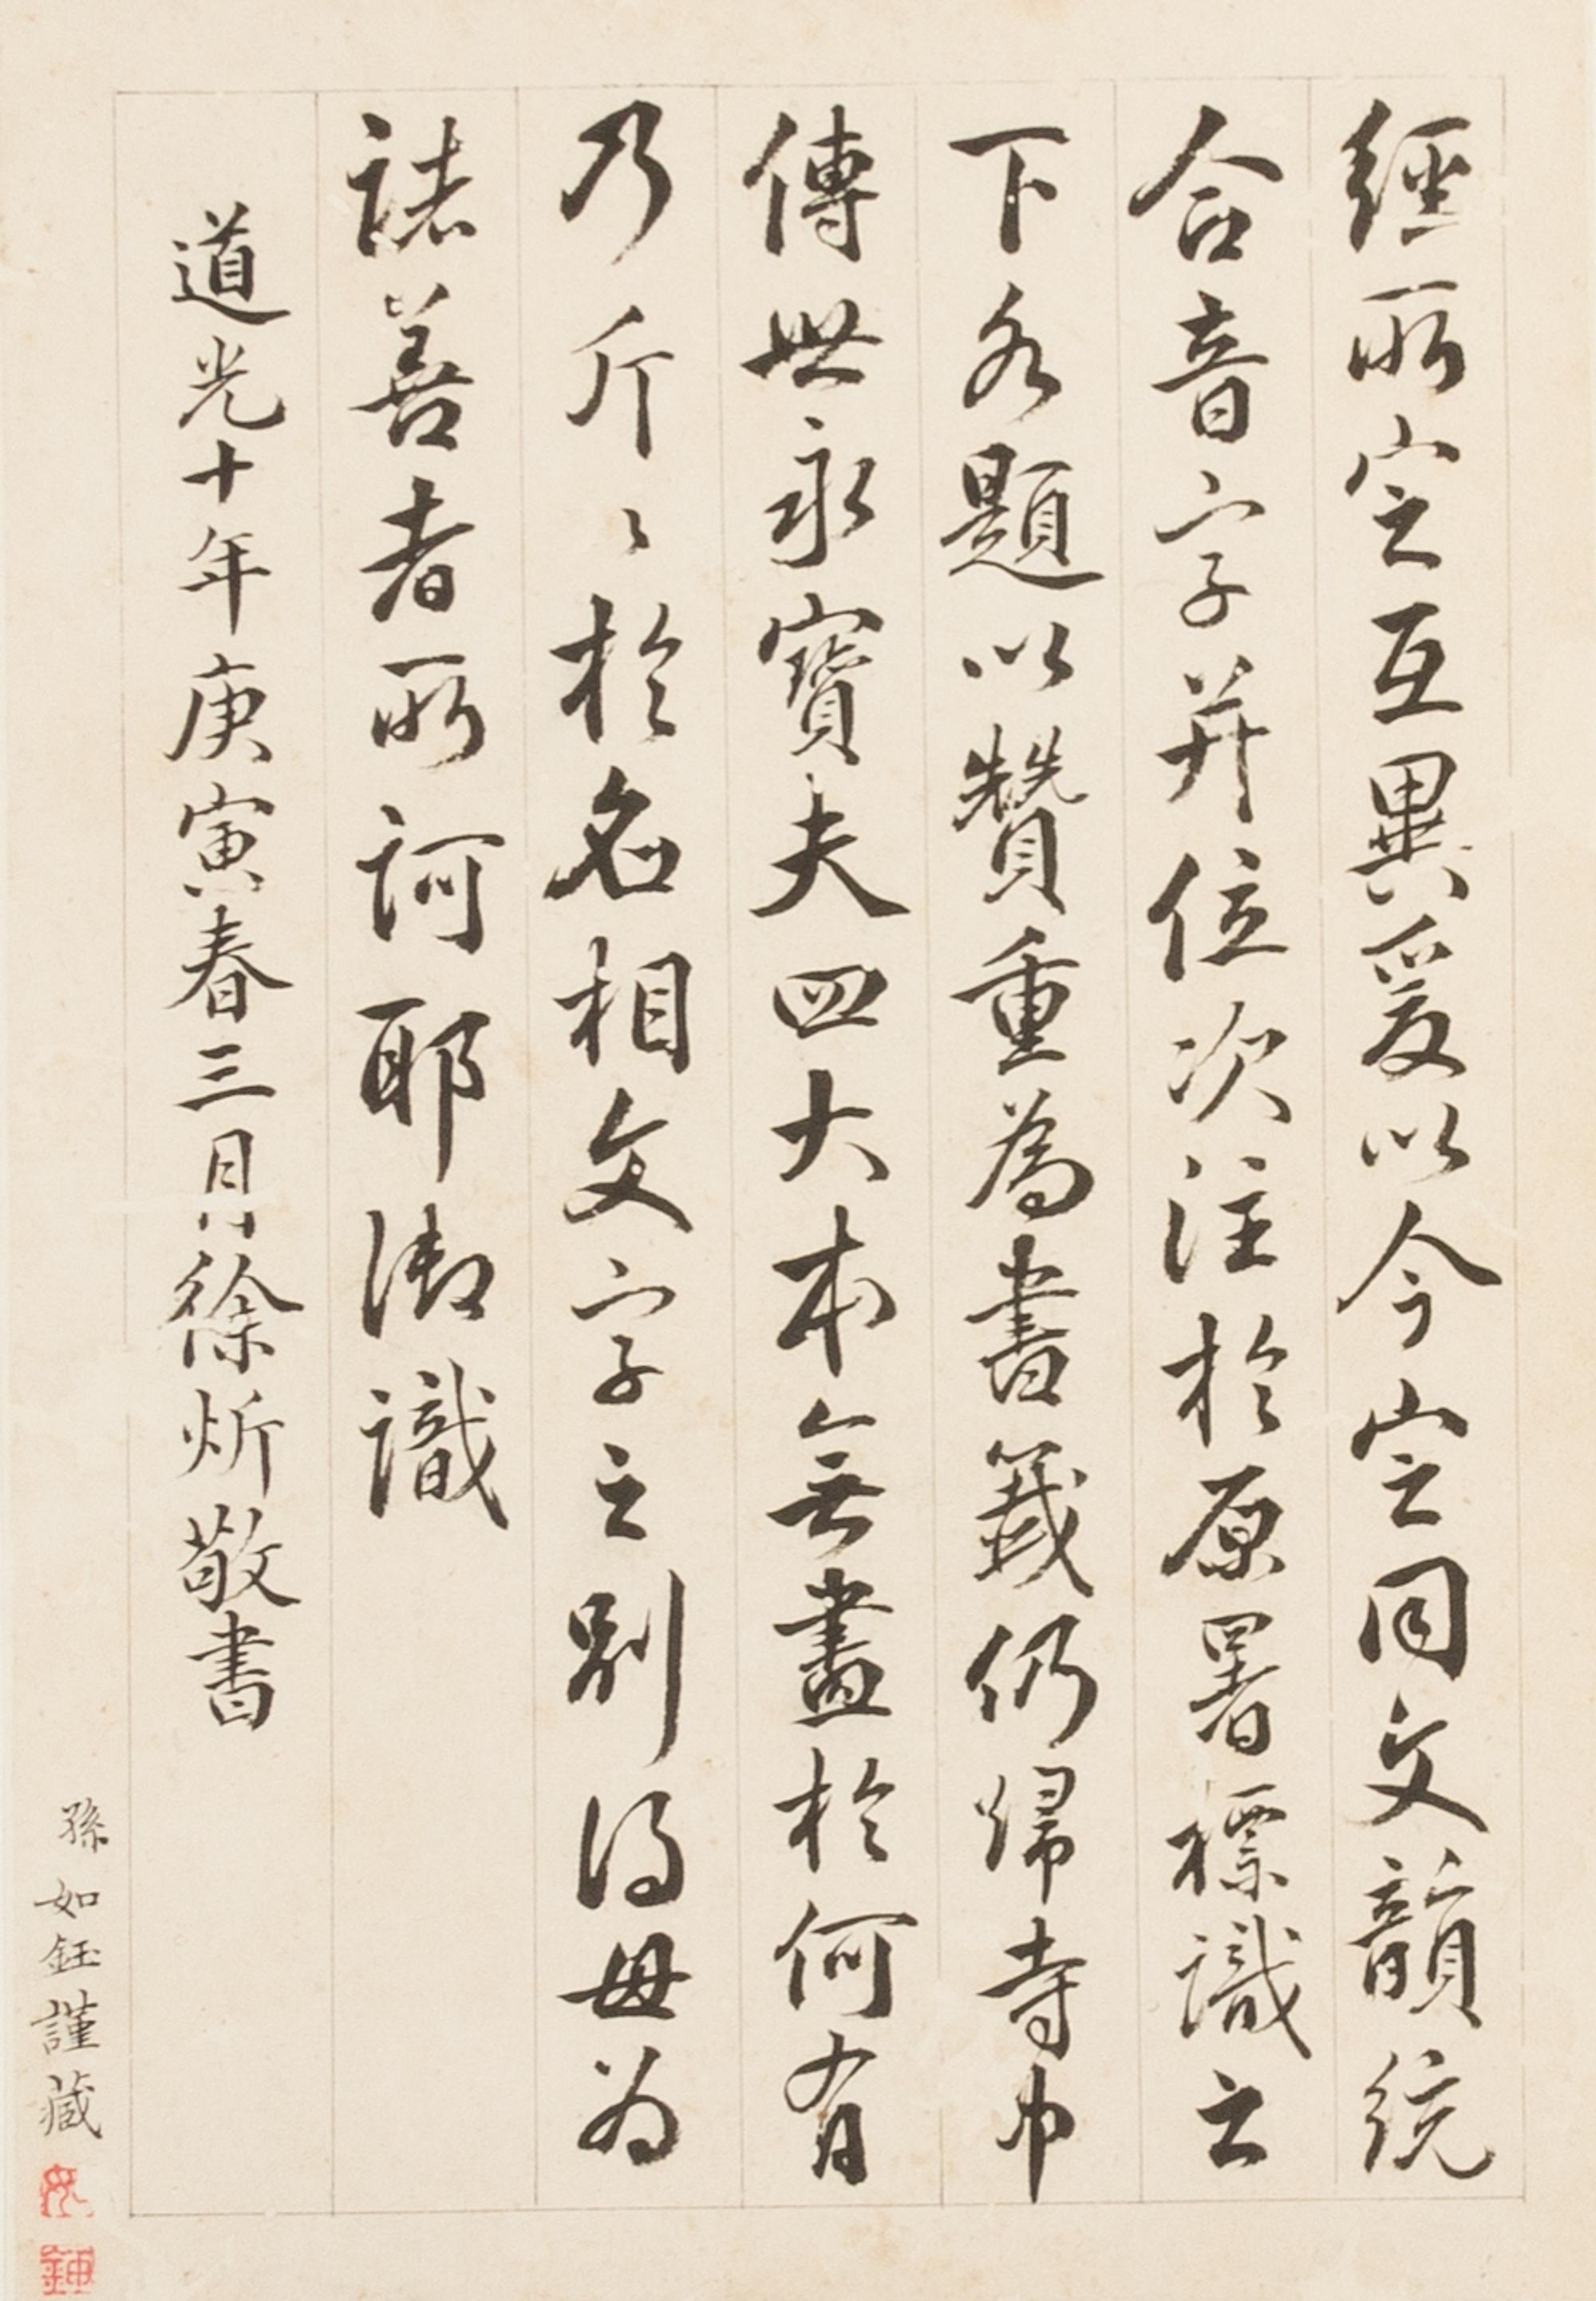 經所定互異爰以今定同文韻統
合音字并位次注於原署標識之
下各題以贊重為書籤仍歸寺中
傳世永寶夫四大本無盡於何有
乃斤〻於名相文字之別得毋為
諸善者所訶耶御識
道光十年庚寅春三月徐炘敬書
孫如鈺謹藏